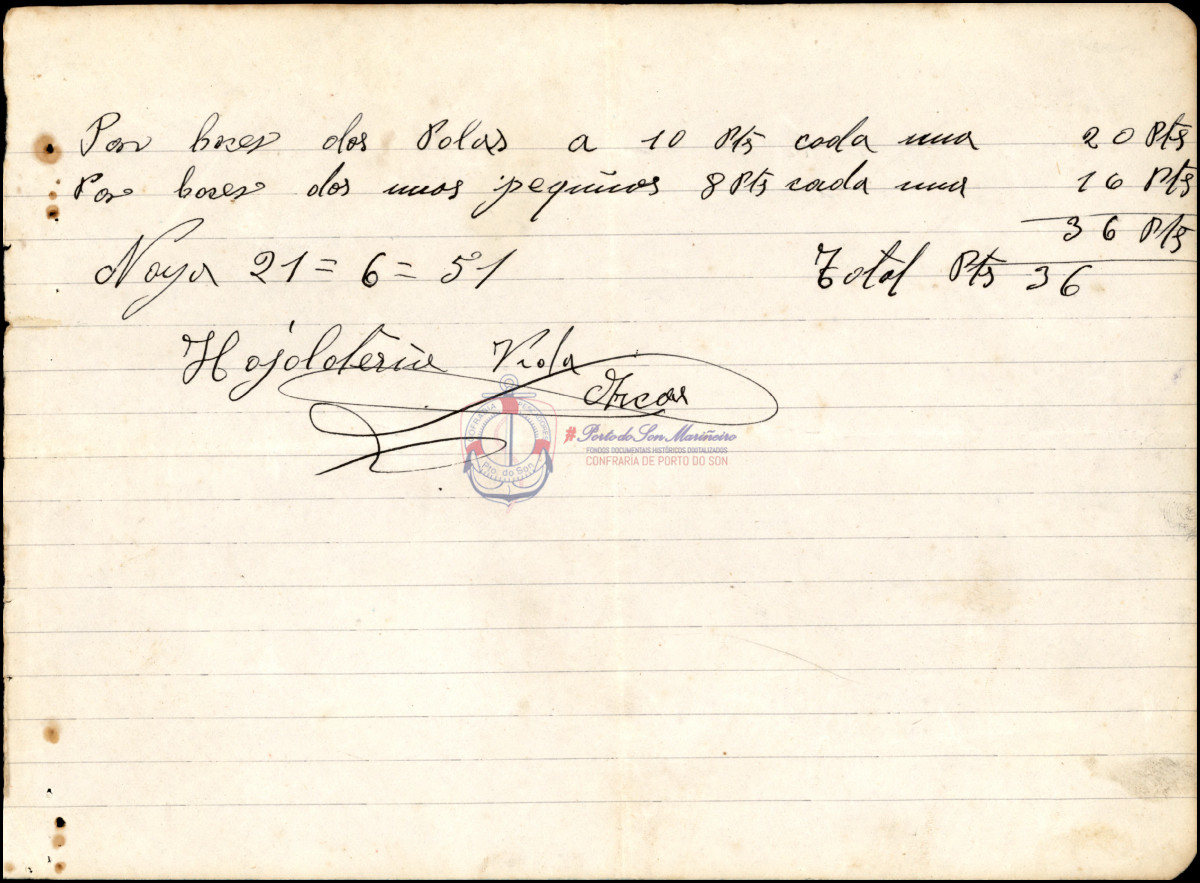 Por hacer dos Potas a 10 Pts cada una 20 Pts
Por hacer dos unas pequeños 8 Pts cada una 16 Pts
36 Pts
Noya 21=6=51 Total Pts 36
Hojolateria Viuda
Arcos
COFRADÍA
Pto. do Son
#Porto do Son Mariñeiro
FONDOS DOCUMENTAIS HISTÓRICOS DIXITALIZADOS
CONFRARÍA DE PORTO DO SON